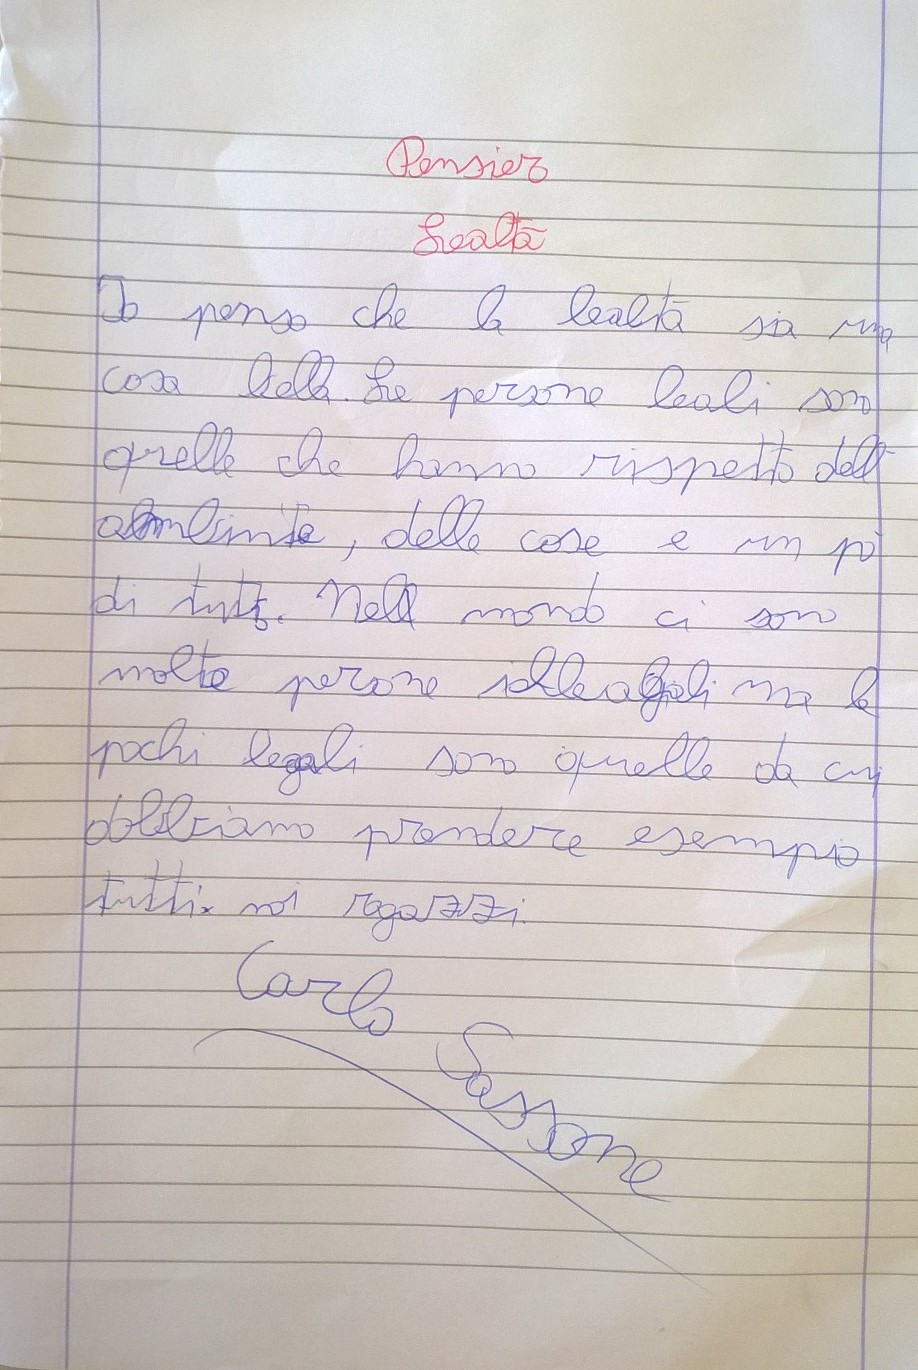 Pensiero
Lealtà
Io penso che la lealtà sia una
cosa bella. Le persone leali sono
quelle che hanno rispetto dell
ambiente, delle cose e un pò
di tutto. Nell mondo ci sono
molte persone ma le
pochi legali sono quelle da cui
dobbiamo prendere esempio
tutti noi ragazzi.
Carlo
Sassone